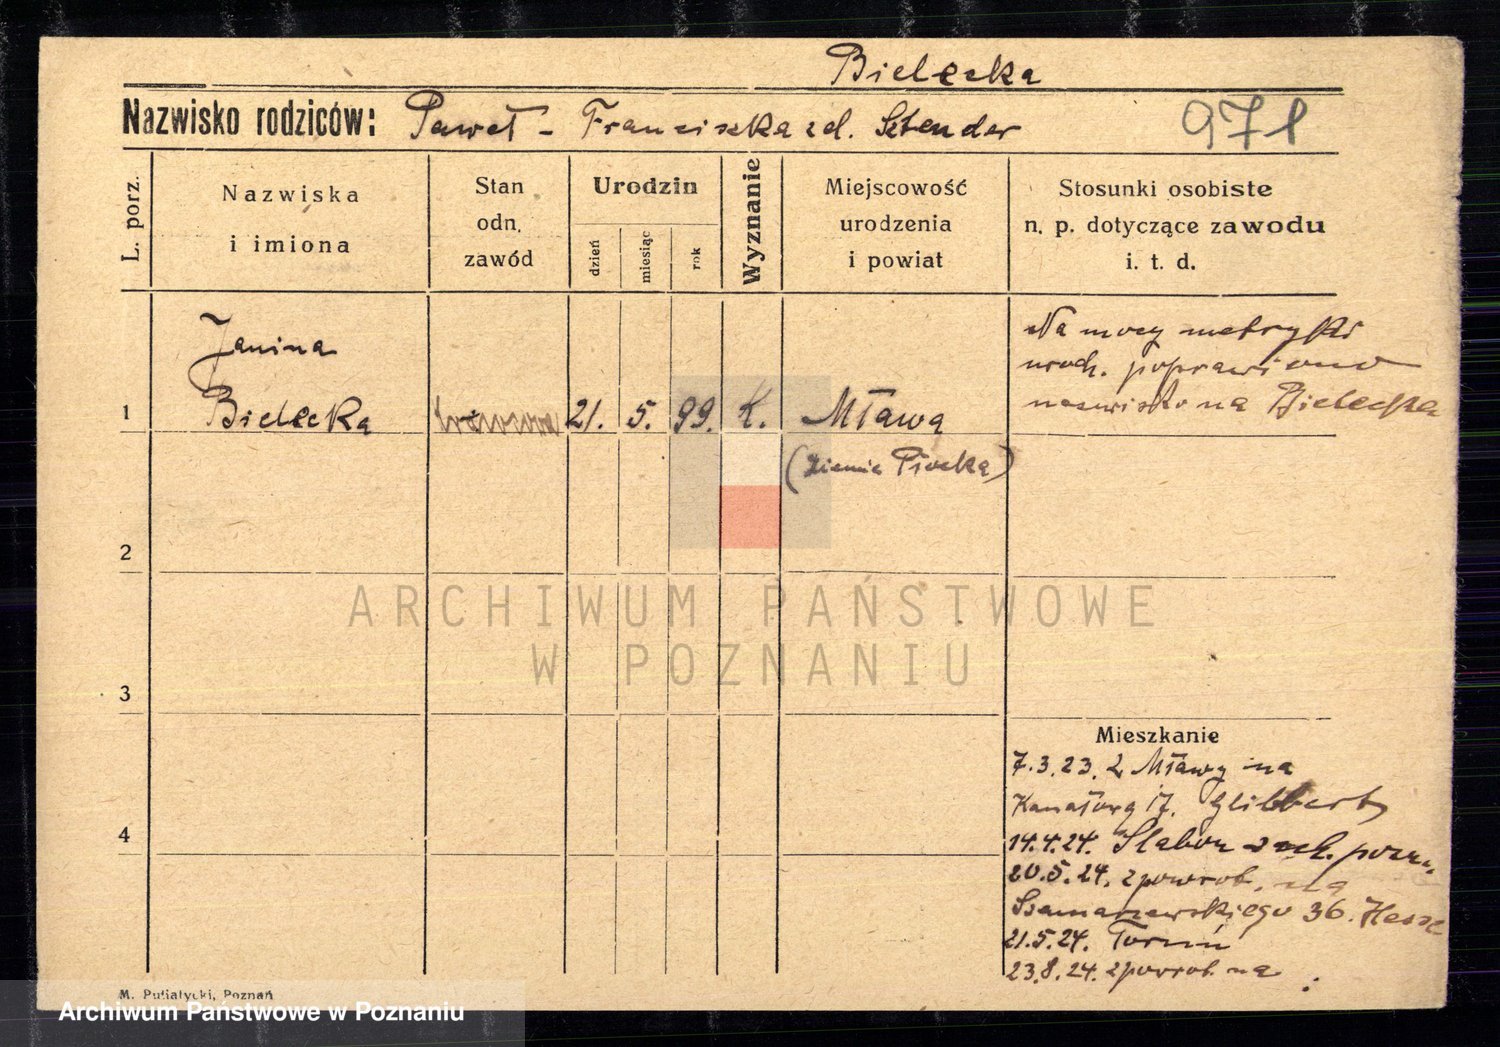 Bielecka
Nazwisko rodziców: Paweł - Franciszka zd. Sztender 971
L. porz.
Nazwiska
i imiona
Stan
odn.
zawód
Urodzin
dzień
miesiąc
rok
Wyznanie
Miejscowość
urodzenia
i powiat
Stosunki osobiste
n. p. dotyczące zawodu
i. t. d.
Janina
1 Bielecka 21. 5. 99. K. Mława
(Ziemia Płocka)
Na mocy metryki
urodz. poprawiono
nazwisko na Bielecka
2
ARCHIWUM PAŃSTWOWE
W POZNANIU
3
4
Mieszkanie
7.3.23. z Mławy na
Kanałową 17.
14.4.24. pozn.
20.5.24. zpowrot. na
Szamarzewskiego 36.
21.5.24. Toruń
23.8.24. zpowrot. na
M. Putiatycki, Poznań
Archiwum Państwowe w Poznaniu